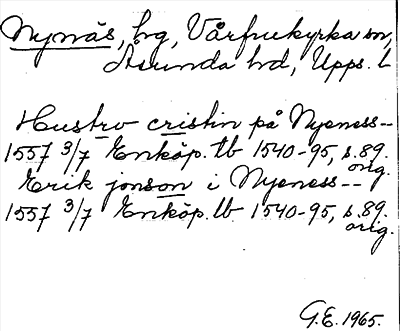 Nynäs, hg, Vårfrukyrka sn,
Åsunda hd, Upps. L
Hustro cristin på Nyeness--
1557 3/7 Enköp. tb 1540-95, s. 89.
orig.
Erik jonson i Nyeness--
1557 3/7 Enköp. tb 1540-95, s. 89.
orig.
G.E. 1965.